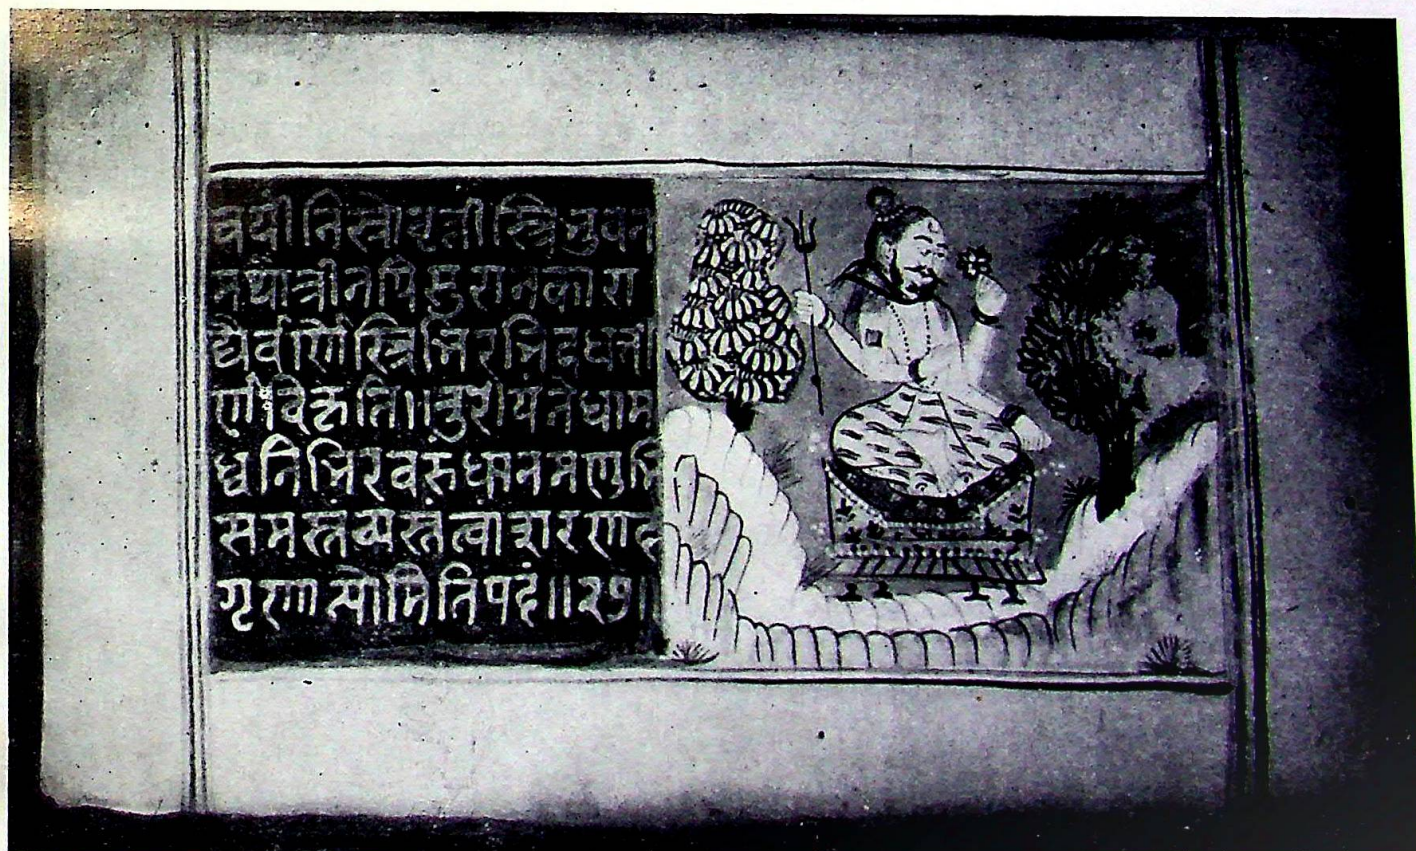 त्रयीं तिस्त्रो वृत्ती स्त्रिभुवन
मथो त्रीनपि सुरानकारा
द्यैर्वर्णै स्त्रिभिरभिदधती
र्णविकृति॥तुरीयंतेधाम
ध्वनिभिरवरुंधानमणुभि
समस्तव्यस्तंत्वाशरणद
गृणात्योमितिपदं॥२७॥